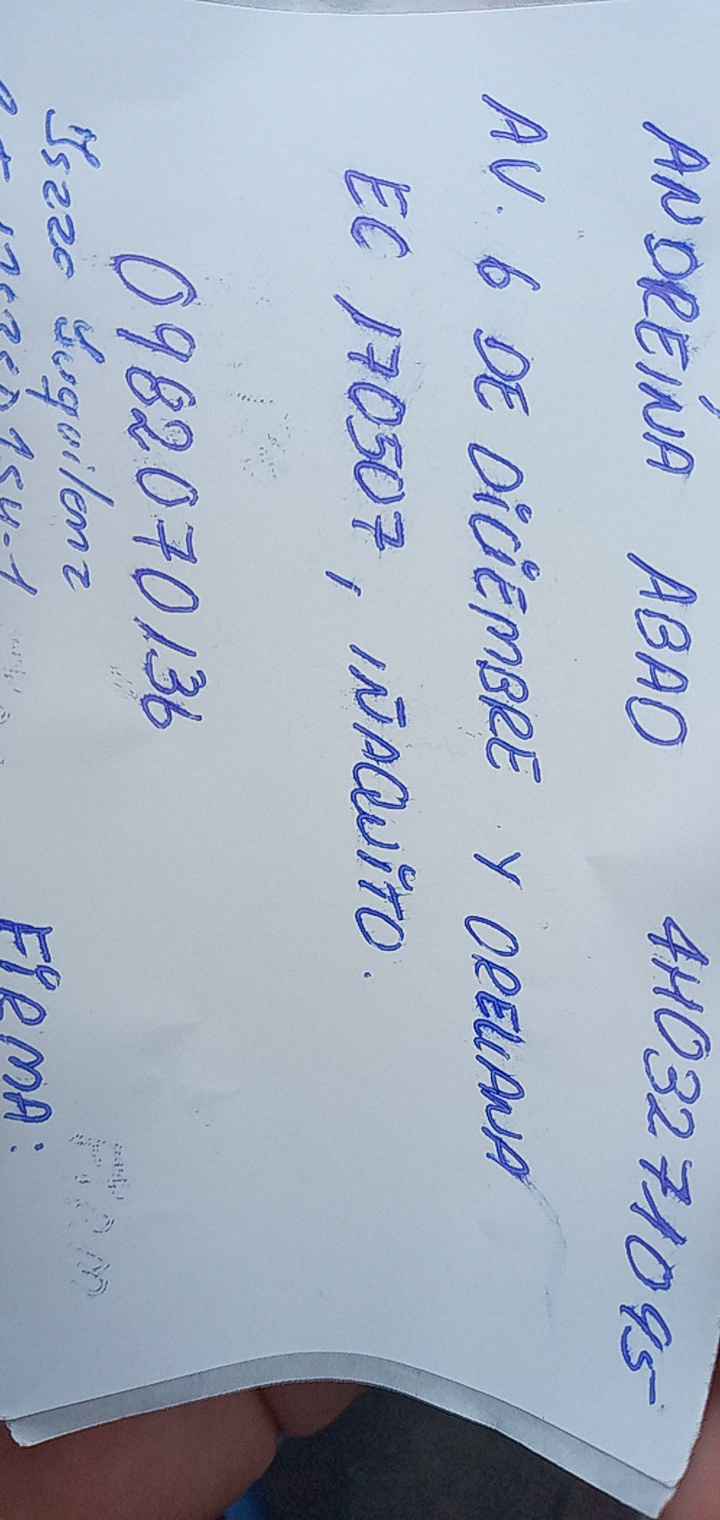 ANDREÍNA ABAD 4H03271095
AV. 6 DE DICIEMBRE Y ORELLANA
EC 170507, IÑAQUITO.
0982070136
FIRMA: